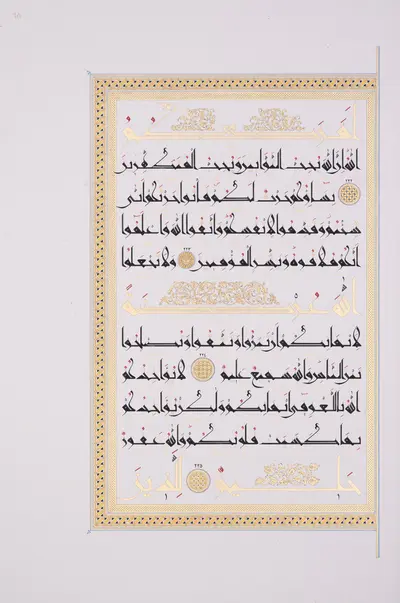 أمركم
الله إن الله يحب التوابين ويحب المتطهرين
٢٢٢ نساؤكم حرث لكم فأتوا حرثكم أنى
شئتم وقدموا لأنفسكم واتقوا الله واعلموا
أنكم ملاقوه وبشر المؤمنين ٢٢٣ ولا تجعلوا
الله عرضة
لأيمانكم أن تبروا وتتقوا وتصلحوا
بين الناس والله سميع عليم ٢٢٤ لا يؤاخذكم
الله باللغو في أيمانكم ولكن يؤاخذكم
بما كسبت قلوبكم والله غفور
حليم ٢٢٥ للذين